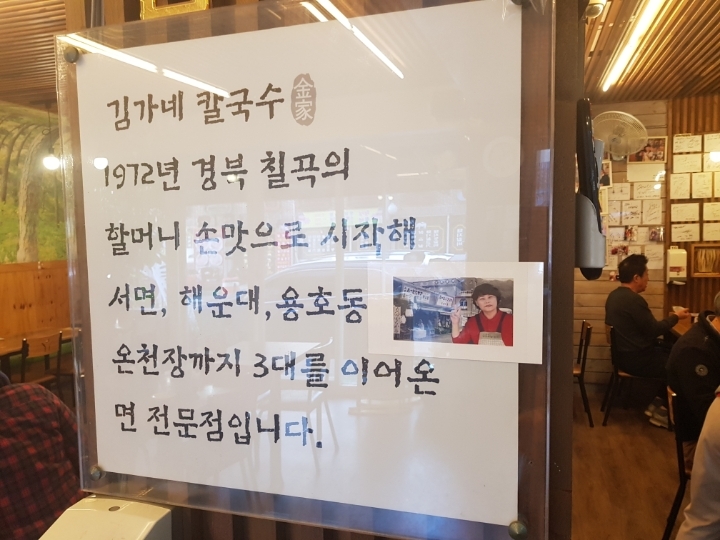 김가네 칼국수 金家
1972년 경북 칠곡의
할머니 손맛으로 시작해
서면, 해운대, 용호동
온천장까지 3대를 이어온
면 전문점입니다.